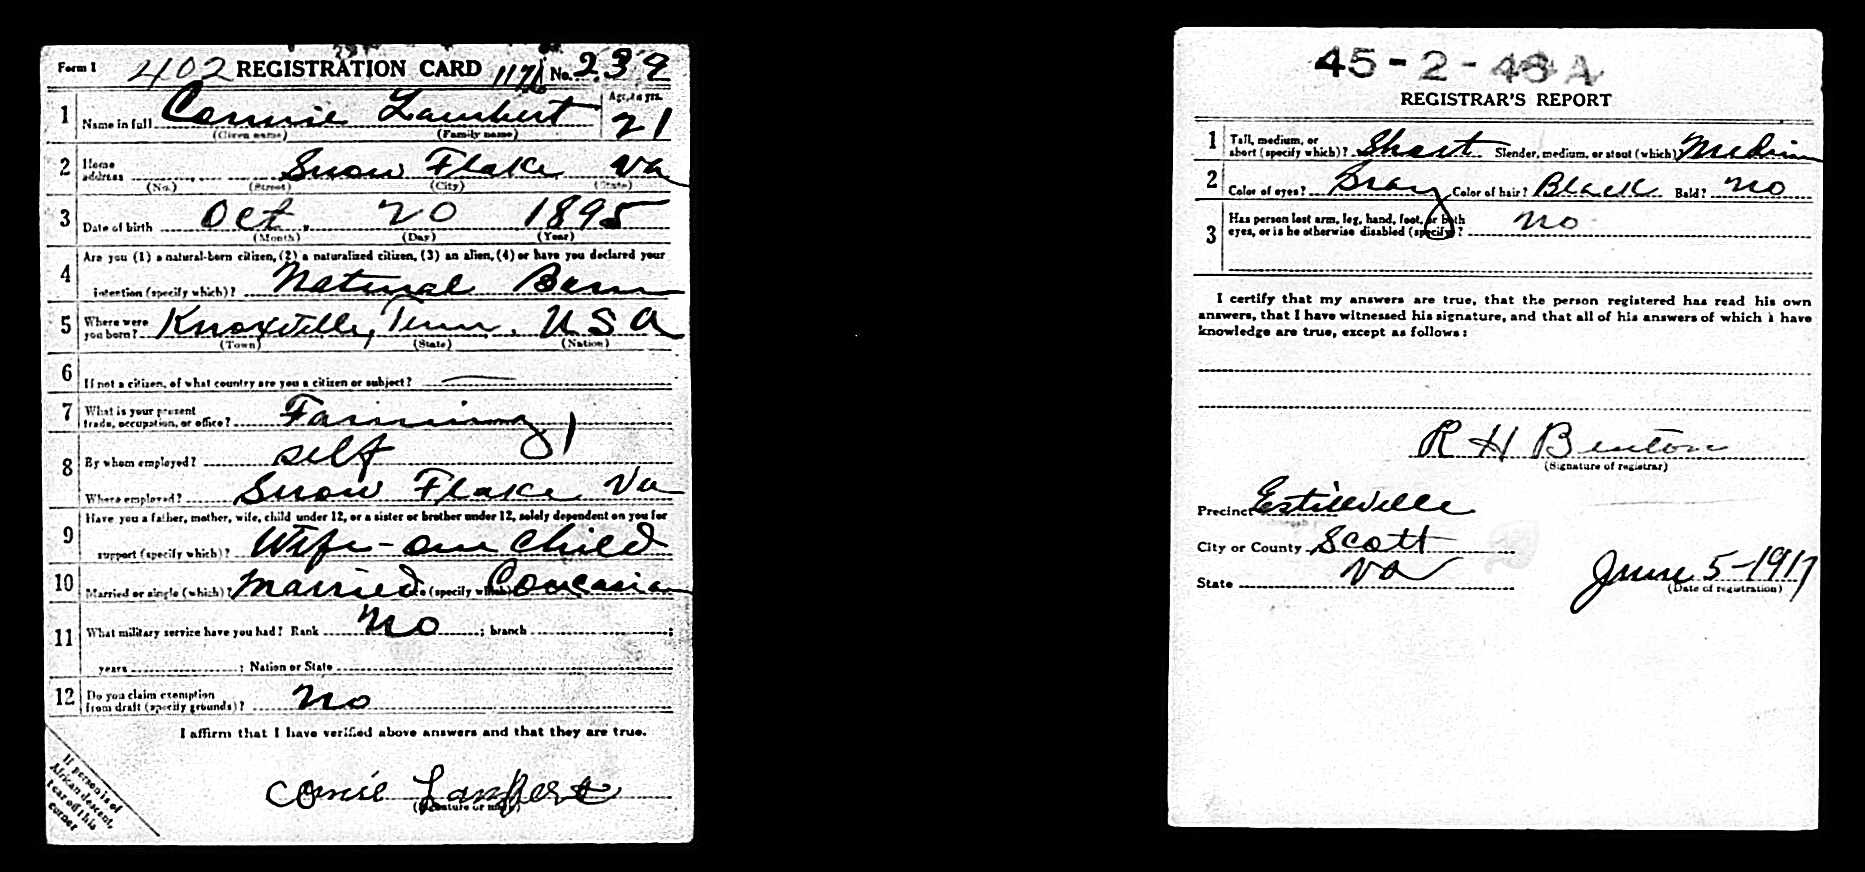 Form 1 402 REGISTRATION CARD 1176 No. 239
1 Name in full Connie Lambert Age, in yrs. 21
(Given name) (Family name)
2 Home address Snow Flake Va
(No.) (Street) (City) (State)
3 Date of birth Oct. 20 1895
(Month) (Day) (Year)
4 Are you (1) a natural-born citizen, (2) a naturalized citizen, (3) an alien, (4) or have you declared your
intention (specify which)? Natural Born
5 Where were you born? Knoxville, Tenn. USA
(Town) (State) (Nation)
6 If not a citizen, of what country are you a citizen or subject? —
7 What is your present
trade, occupation, or office? Farming 1
8 By whom employed? self
Where employed? Snow Flake Va
9 Have you a father, mother, wife, child under 12, or a sister or brother under 12, solely dependent on you for
support (specify which)? Wife - one child
10 Married or single (which)? Married (specify which) Concasian
11 What military service have you had? Rank No ; branch ;
years ; Nation or State
12 Do you claim exemption
from draft (specify grounds)? No
I affirm that I have verified above answers and that they are true.
Connie Lambert
(Signature or mark)
If person is of
African descent,
tear off this
corner
45-2-48 A
REGISTRAR'S REPORT
1 Tall, medium, or
short (specify which)? Short Slender, medium, or stout (which)? Medium
2 Color of eyes? Gray Color of hair? Black Bald? No
3 Has person lost arm, leg, hand, foot, or both
eyes, or is he otherwise disabled (specify)? No
I certify that my answers are true, that the person registered has read his own
answers, that I have witnessed his signature, and that all of his answers of which I have
knowledge are true, except as follows:
R H Benton
(Signature of registrar)
Precinct Estillville
City or County Scott
State Va
June 5-1917
(Date of registration)